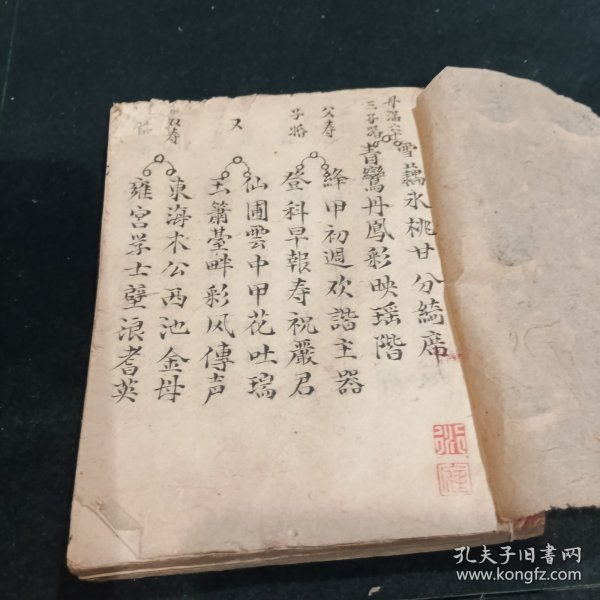 雪藕冰桃甘分绮席
青鸞丹鳳彩映瑶階
絳甲初週欢諧主器
登科早報寿祝嚴君
仙圃雲中甲花吐瑞
玉簫臺畔彩凤傳声
東海木公西池金母
雍宫学士壁浪耆英
父寿
子婚
又
双寿
孔夫子旧书网
www.kongfz.com